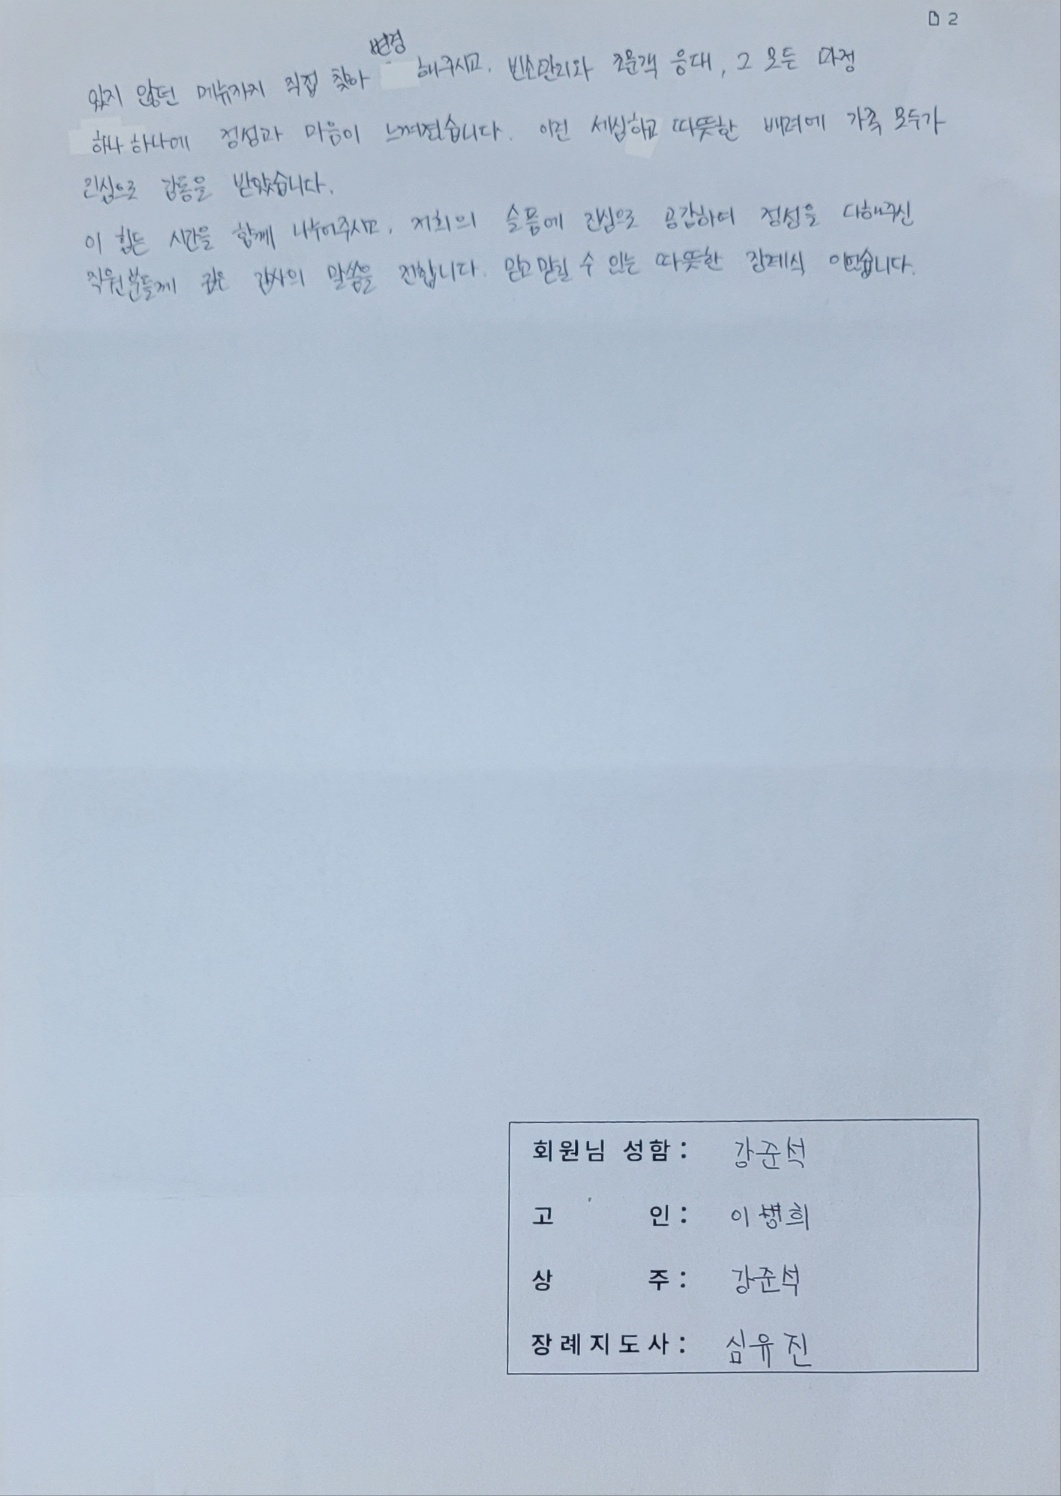 2
있지 않던 메뉴까지 직접 찾아 변경 해주시고. 빈소관리와 조문객 응대, 그 모든 과정
하나 하나에 정성과 마음이 느껴졌습니다. 이런 세심하고 따뜻한 배려에 가족 모두가
진심으로 감동을 받았습니다.
이 힘든 시간을 함께 나누어주시고, 저희의 슬픔에 진심으로 공감하여 정성을 다해주신
직원분들께 깊은 감사의 말씀을 전합니다. 믿고 맡길 수 있는 따뜻한 장례식 이었습니다.
회원님 성함: 강준석
고 인: 이병희
상 주: 강준석
장례지도사: 심유진